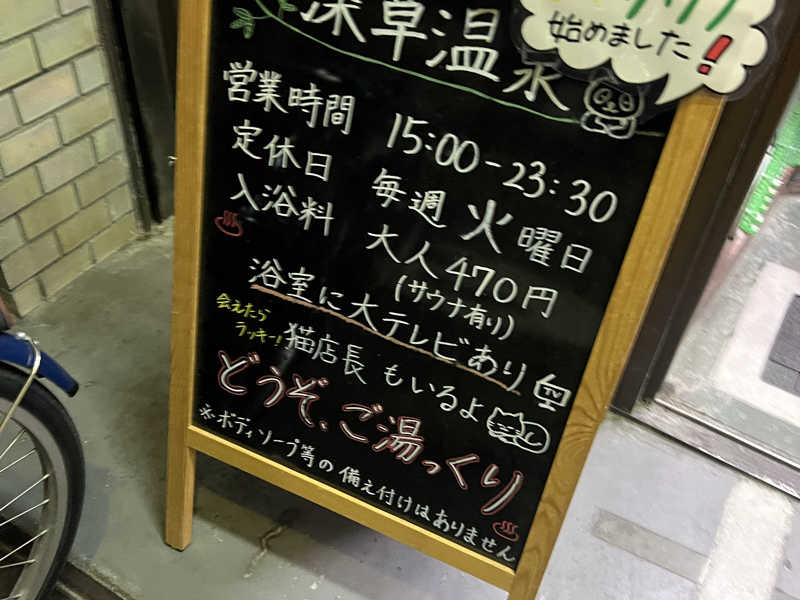 始めました!
深草温水
営業時間 15:00-23:30
定休日 毎週火曜日
入浴料 大人470円
(サウナ有り)
浴室に大テレビあり
TV
会えたら
ラッキー!
猫店長もいるよ
どうぞ、ご湯っくり
※ボディソープ等の備え付けはありません